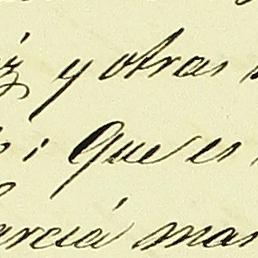 y otras
que es
arcia mar